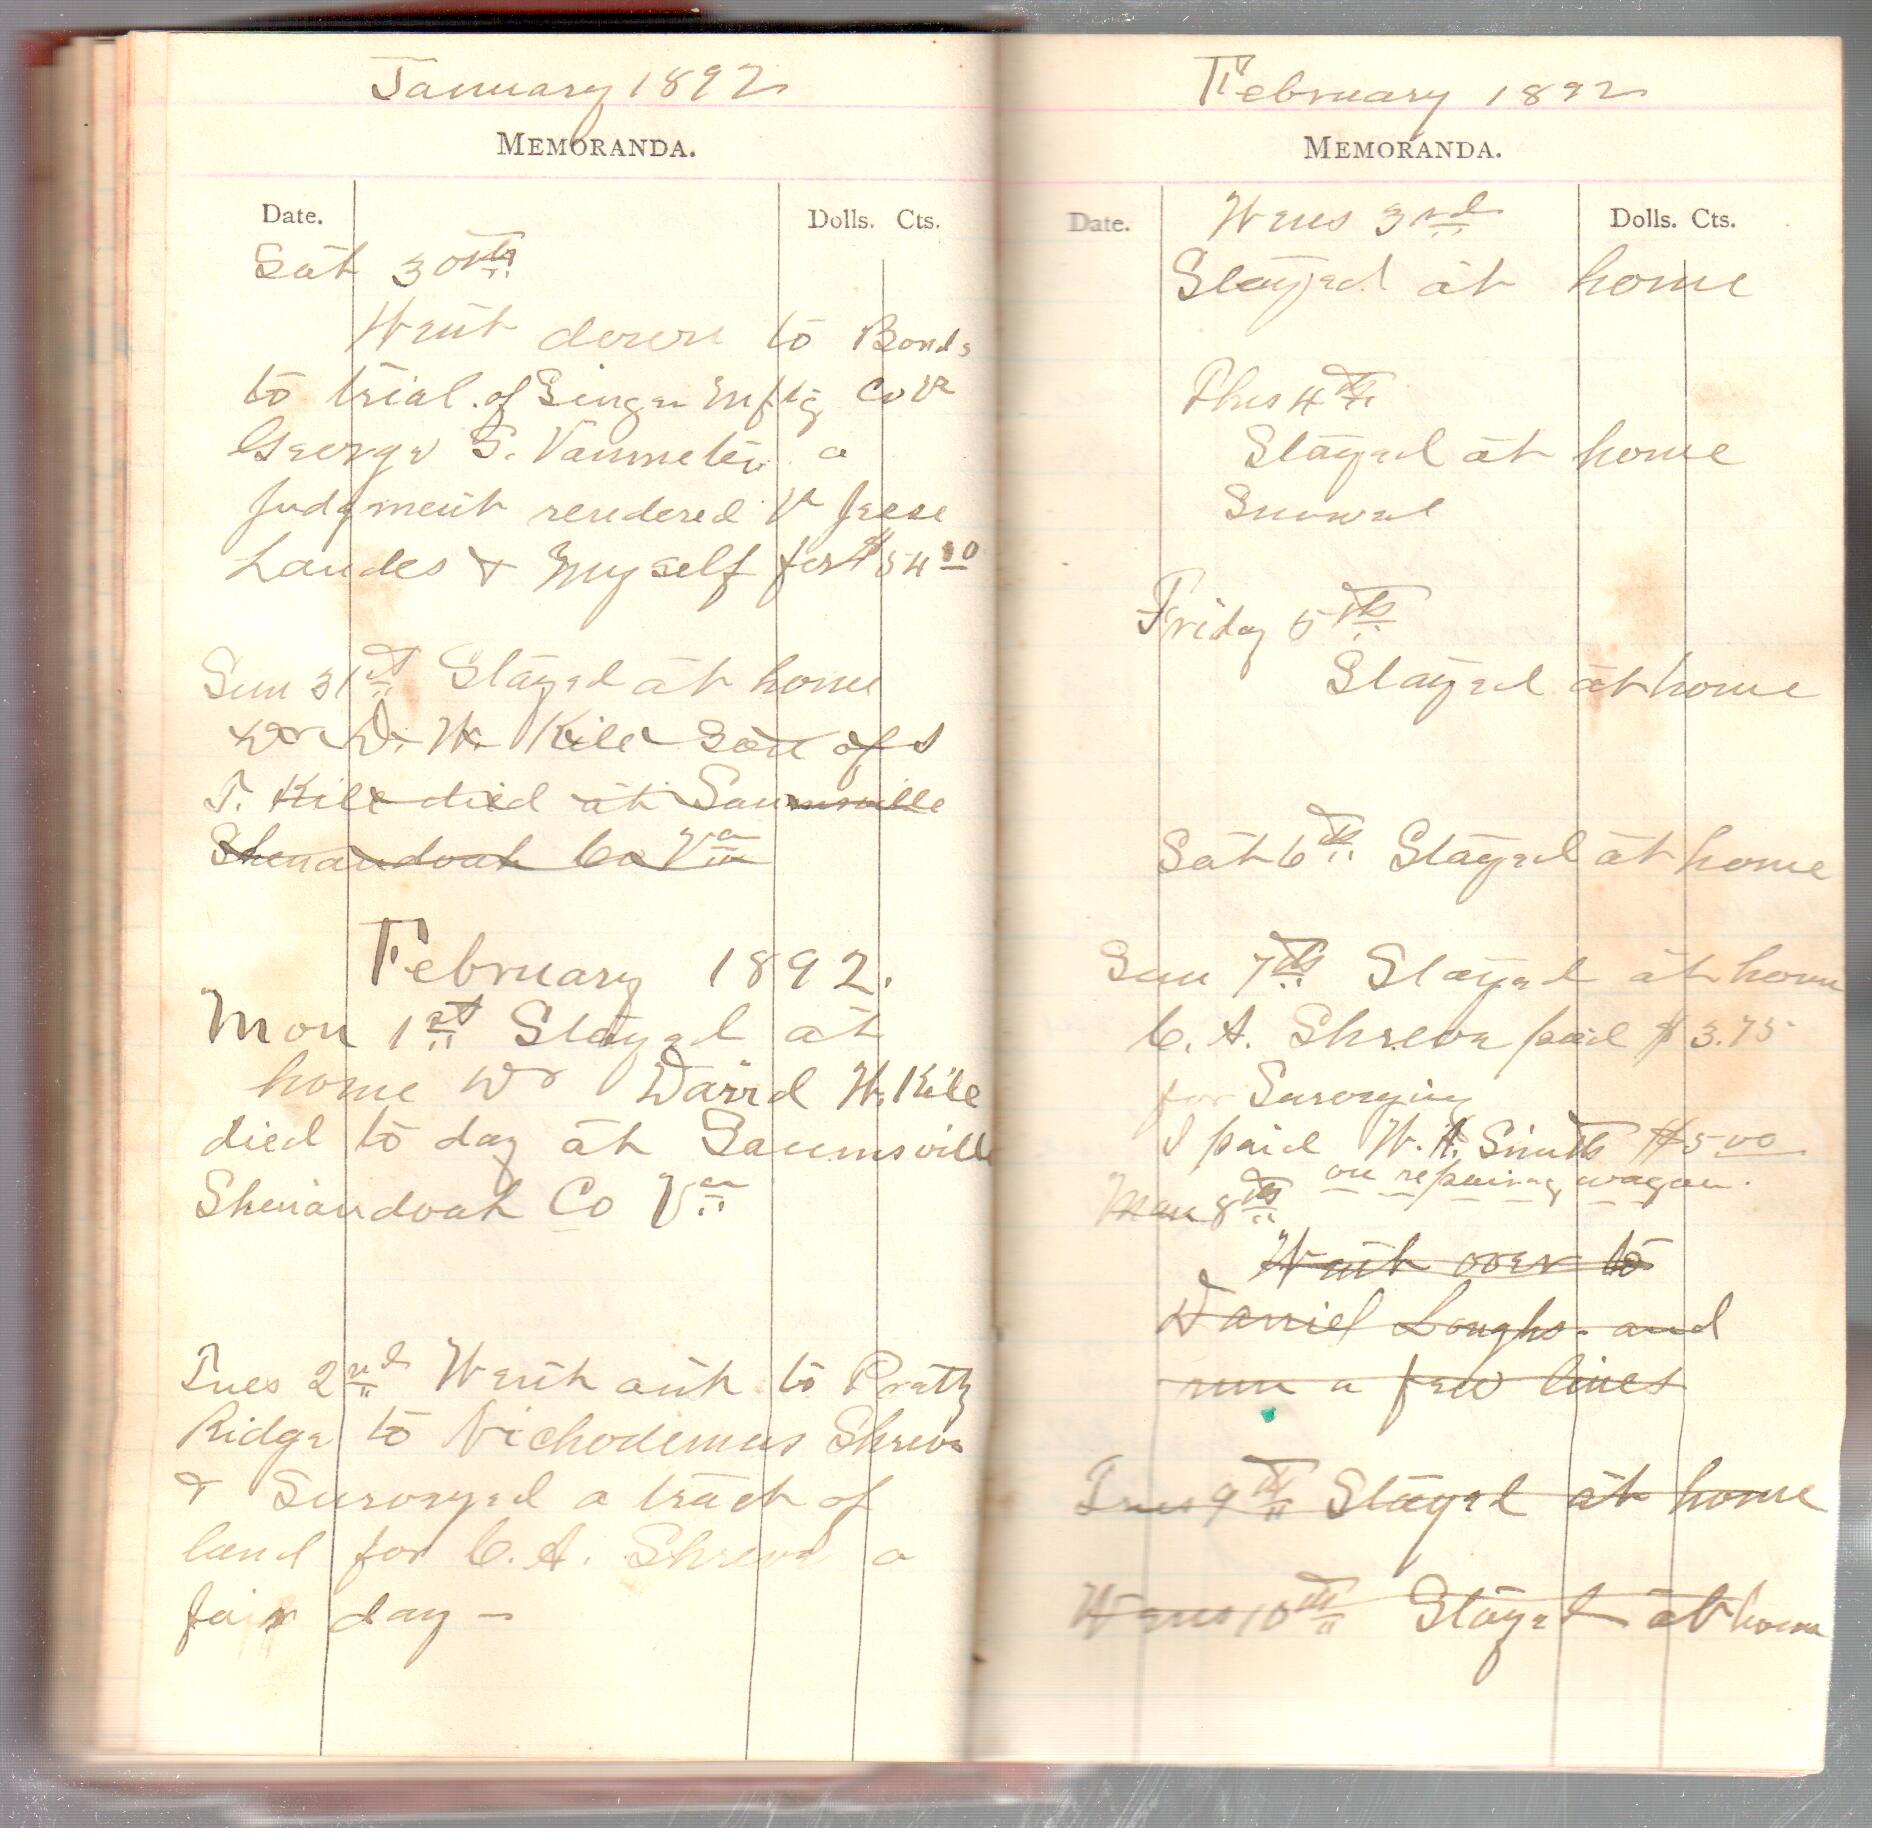 January 1892
MEMORANDA.
Date. Dolls. Cts.
Sat 30th
Went down to Bonds
to trial of Singer Mftg Co vs
George S. Vanmeter a
Judgment rendered vs Jesse
Landes & Myself for $54
Sun 31st Stayed at home
Dr D. W. Kile Son of
T. Kile died at Saumsville
Shenandoah Co Va
February 1892.
Mon 1st Stayed at
home Dr David W. Kile
died to day at Saumsville
Shenandoah Co Va
Tues 2nd Went out to
Ridge to Nichodemus Shreve
& Surveyed a tract of
land for C. A. Shreve a
fair day –
February 1892
MEMORANDA.
Date. Dolls. Cts.
Wens 3rd
Stayed at home
Thus 4th
Stayed at home
Snowed
Friday 5th
Stayed at home
Sat 6th Stayed at home
Sun 7th Stayed at home
C. A. Shreve paid $3.75
for Surveying
I paid W. A. Smith $5.00
on repairing wagon.
Mon 8th
Went over to
Daniel and
run a few lines
Tues 9th Stayed at home
Wens 10th Stayed at home